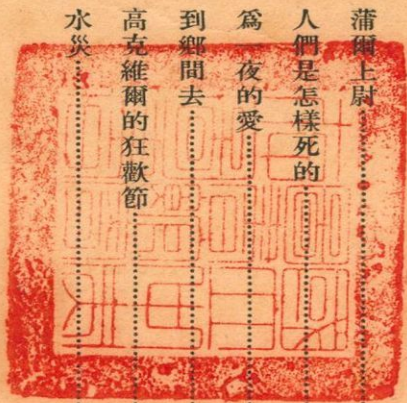 蒲爾上尉…………
人們是怎樣死的…………
爲一夜的愛…………
到鄉間去…………
高克維爾的狂歡節…………
水災…………